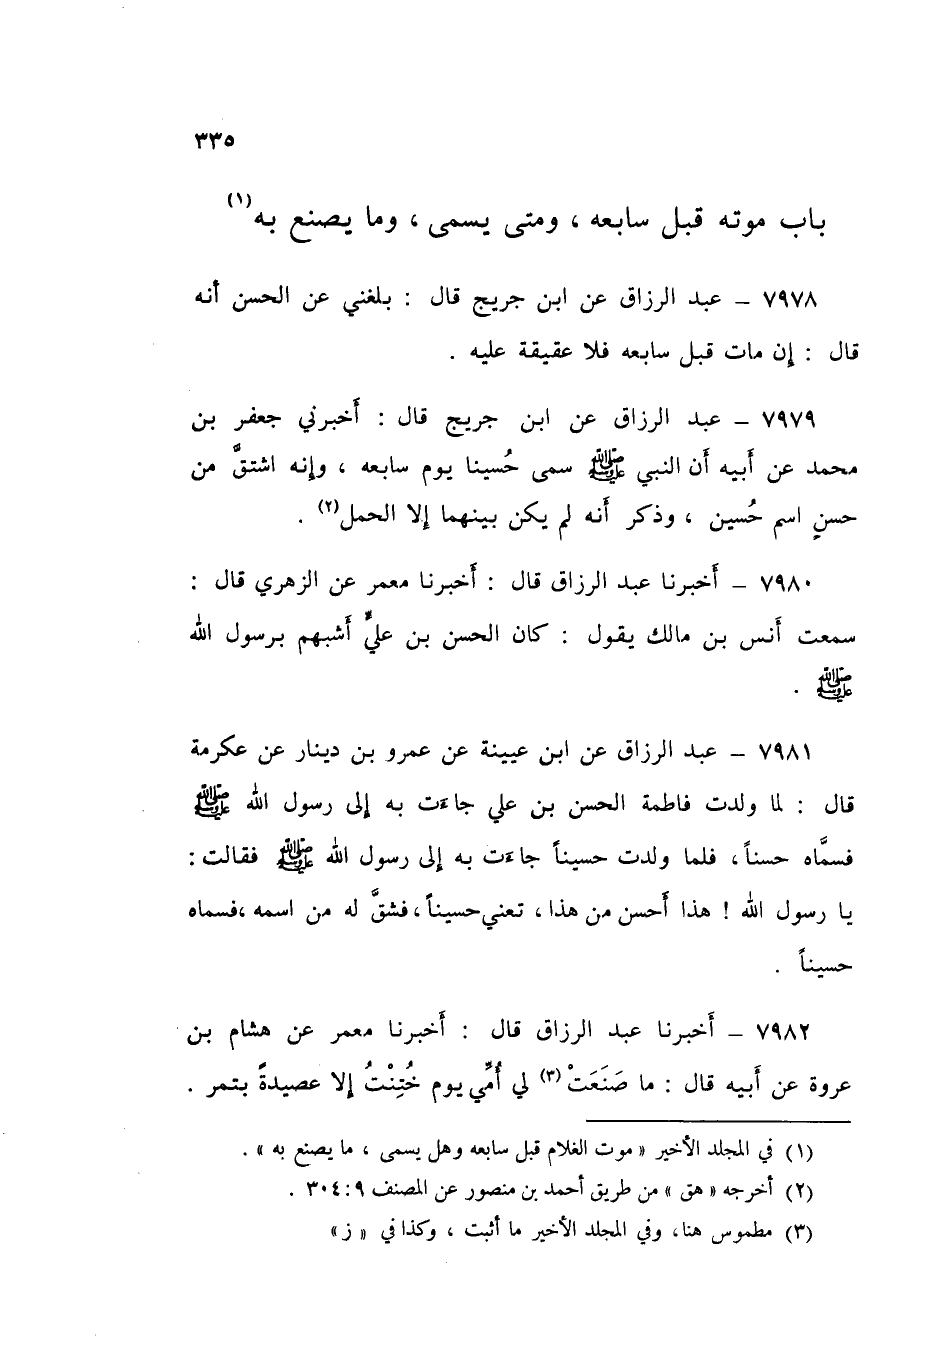 ٣٣٥
باب موته قبل سابعه ، ومتى يسمى ، وما يصنع به(١)
٧٩٧٨ – عبد الرزاق عن ابن جريج قال : بلغني عن الحسن أنه
قال : إن مات قبل سابعه فلا عقيقة عليه .
٧٩٧٩ – عبد الرزاق عن ابن جريج قال : أخبرني جعفر بن
محمد عن أبيه أن النبي ﷺ سمى حُسينا يوم سابعه ، وإنه اشتقَّ من
حسنٍ اسم حُسين ، وذكر أنه لم يكن بينهما إلا الحمل(٢) .
٧٩٨٠ – أخبرنا عبد الرزاق قال : أخبرنا معمر عن الزهري قال :
سمعت أنس بن مالك يقول : كان الحسن بن عليٍّ أشبهم برسول الله
ﷺ .
٧٩٨١ – عبد الرزاق عن ابن عيينة عن عمرو بن دينار عن عكرمة
قال : لما ولدت فاطمة الحسن بن علي جاءت به إلى رسول الله ﷺ
فسمَّاه حسناً ، فلما ولدت حسيناً جاءت به إلى رسول الله ﷺ فقالت :
يا رسول الله ! هذا أحسن من هذا ، تعني حسيناً ، فشقَّ له من اسمه ، فسماه
حسيناً .
٧٩٨٢ – أخبرنا عبد الرزاق قال : أخبرنا معمر عن هشام بن
عروة عن أبيه قال : ما صَنَعَتْ(٣) لي أُمِّي يوم خُتِنْتُ إلا عصيدةً بتمر .
(١) في المجلد الأخير « موت الغلام قبل سابعه وهل يسمى ، ما يصنع به » .
(٢) أخرجه « هق » من طريق أحمد بن منصور عن المصنف ٩ : ٣٠٤ .
(٣) مطموس هنا، وفي المجلد الأخير ما أثبت ، وكذا في « ز »